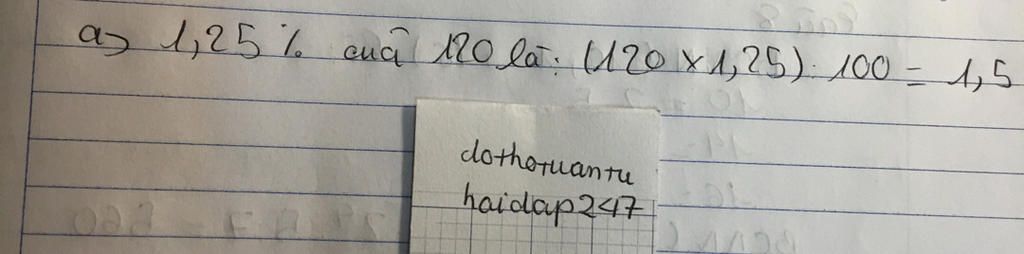 a) 1,25 % cuả 120 là: (120 x 1,25) : 100 = 1,5
dothotuantu
haidap247